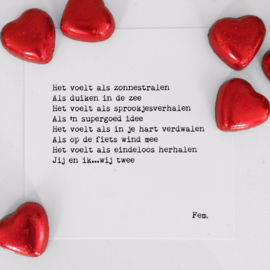 Het voelt als zonnestralen
Als duiken in de zee
Het voelt als sprookjesverhalen
Als 'n supergoed idee
Het voelt als in je hart verdwalen
Als op de fiets wind mee
Het voelt als eindeloos herhalen
Jij en ik...wij twee
Fem.